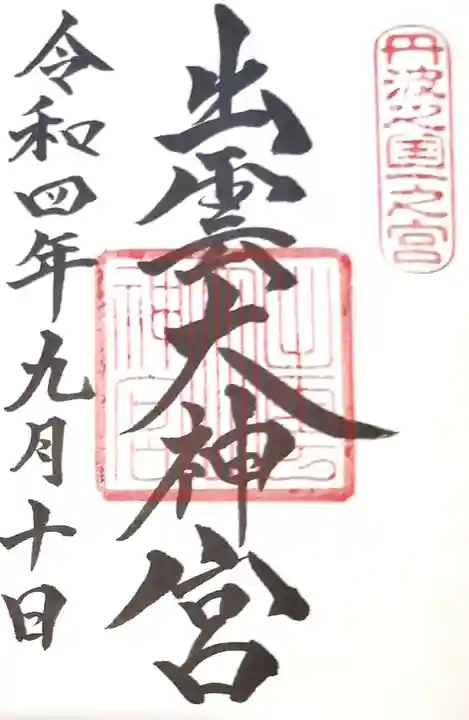 丹波之国一之宮
出雲大神宮
令和四年九月十日